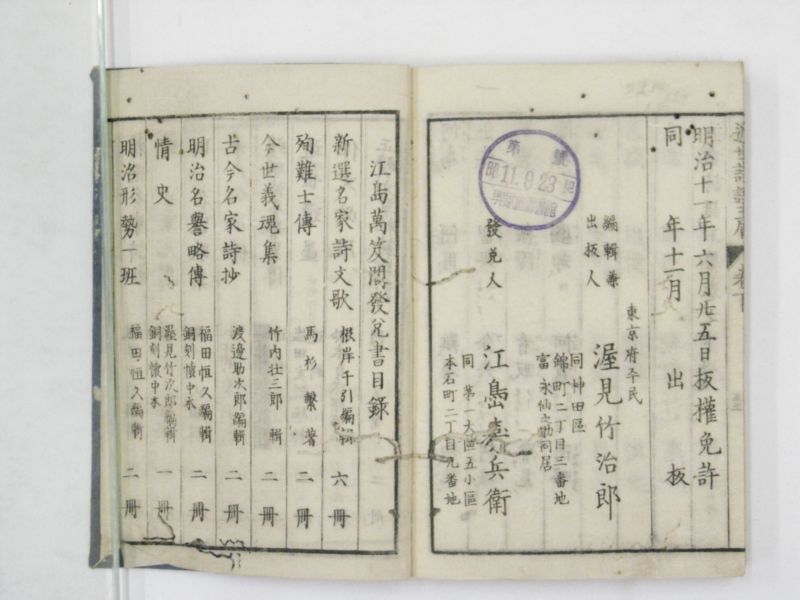 明治十一年六月廿五日板權免許
同年十一月出板
東京府平民
編輯兼
出板人
渥見竹治郎
同神田區
錦町二丁目三番地
富永仙八郎同居
發兌人
江島喜兵衛
同第一大區五小區
本石町二丁目九番地
11.9.23
江島萬笈閣發兌書目録
新選名家詩文歌 根岸千引編輯 六冊
殉難士傳 馬杉繋著 二冊
今世義魂集 竹内壮三郎輯 二冊
古今名家詩抄 渡邊助次郎編輯 二冊
明治名譽略傳 福田恒久編輯 銅刻懐中本 二冊
情史 渥見竹次郎編輯 銅刻懐中本 一冊
明治形勢一班 福田恒久編輯 二冊